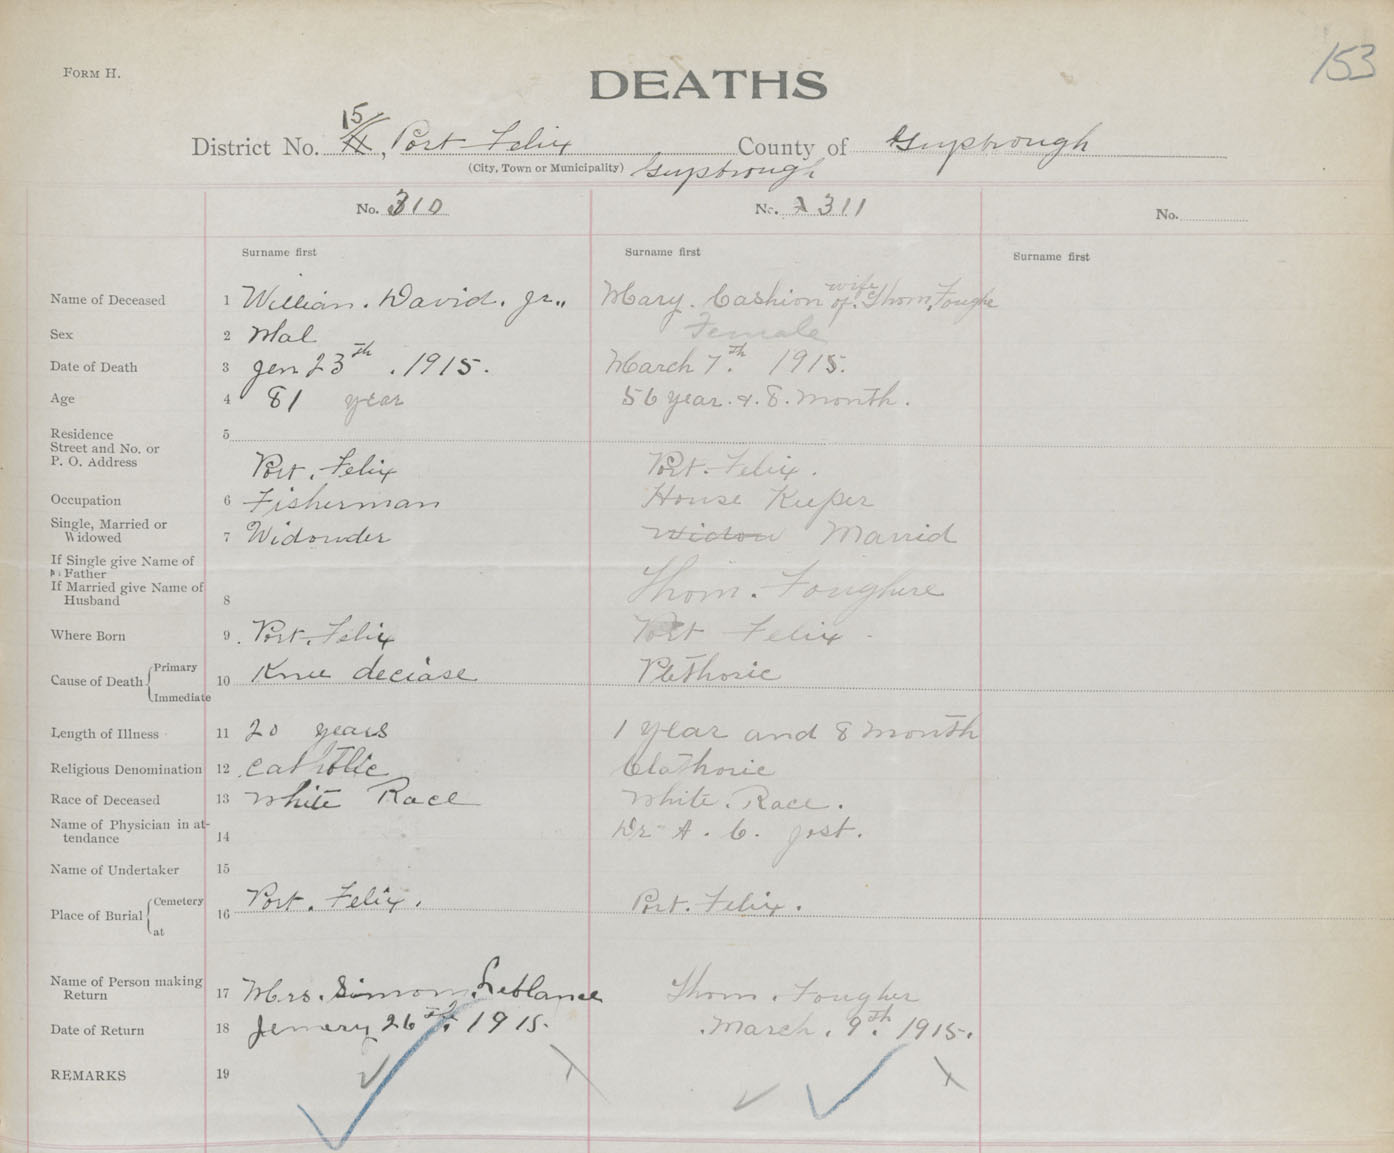 153
FORM H.
DEATHS
District No. 15, Port Felix County of Guysbrough
(City, Town or Municipality) Guysbrough
No. 310 No. 311 No.
Surname first Surname first Surname first
Name of Deceased 1 Willian. David. Jr.. Mary. Cashion wife of. Thom. Foughe
Sex 2 Mal Female
Date of Death 3 Jen 23th. 1915. March 7th. 1915.
Age 4 81 year 56 year. & 8. month.
Residence 5
Street and No. or
P. O. Address Port. Felix Port. Felix.
Occupation 6 Fisherman House Keeper
Single, Married or
Widowed 7 Widowder Widow Marrid
If Single give Name of
Father
If Married give Name of
Husband 8 Thom. Foughere
Where Born 9. Port. Felix Port Felix.
Cause of Death Primary 10 Knee deciase Plethoric
Immediate
Length of Illness 11 20 years 1 year and 8 month
Religious Denomination 12 Catholic Clathoric
Race of Deceased 13 White Race White. Race.
Name of Physician in at-
tendance 14 Dr A. C. Jost.
Name of Undertaker 15
Place of Burial Cemetery 16 Port. Felix. Port. Felix.
at
Name of Person making
Return 17 Mrs. Simon. Leblance Thom. Fougher
Date of Return 18 Jenuery 26th. 1915. March. 9th. 1915.
REMARKS 19